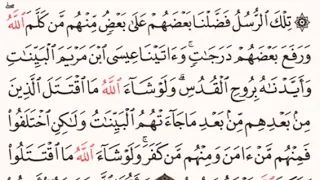 ۞ تِلْكَ ٱلرُّسُلُ فَضَّلْنَا بَعْضَهُمْ عَلَىٰ بَعْضٍ مِّنْهُم مَّن كَلَّمَ ٱللَّهُ
وَرَفَعَ بَعْضَهُمْ دَرَجَٰتٍ وَءَاتَيْنَا عِيسَى ٱبْنَ مَرْيَمَ ٱلْبَيِّنَٰتِ
وَأَيَّدْنَٰهُ بِرُوحِ ٱلْقُدُسِ ۗ وَلَوْ شَآءَ ٱللَّهُ مَا ٱقْتَتَلَ ٱلَّذِينَ
مِنۢ بَعْدِهِم مِّنۢ بَعْدِ مَا جَآءَتْهُمُ ٱلْبَيِّنَٰتُ وَلَٰكِنِ ٱخْتَلَفُوا۟
فَمِنْهُم مَّنْ ءَامَنَ وَمِنْهُم مَّن كَفَرَ ۚ وَلَوْ شَآءَ ٱللَّهُ مَا ٱقْتَتَلُوا۟